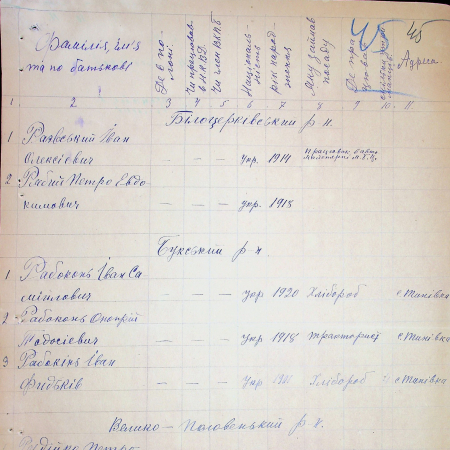 45 45
Фамілія, ім'я
та по батькові
Де в полоні
Чи працював в Н.К.В.Д.
Чи член ВКПб
Національність
рік народження
Яку займав посаду
Адреса
1 2 3 4 5 6 7 8 9 10 11
Білоцерківський р-н.
1 Раєвський Іван
Олексієвич — — укр. 1914
2 Рабий Петро Евдо-
кимович — — укр. 1918
Букський р-н.
1 Рабоконь Іван Са
мійлович — — — укр 1920 Хлібороб с. Тинівка
2 Рабоконь Онопрій
Модосієвич — — — укр 1918 тракторист с. Тинівка
3 Рабокінь Іван
Фидьків — — — укр Хлібороб с. Тинівка
Велико-Половецький р-н.
Петро